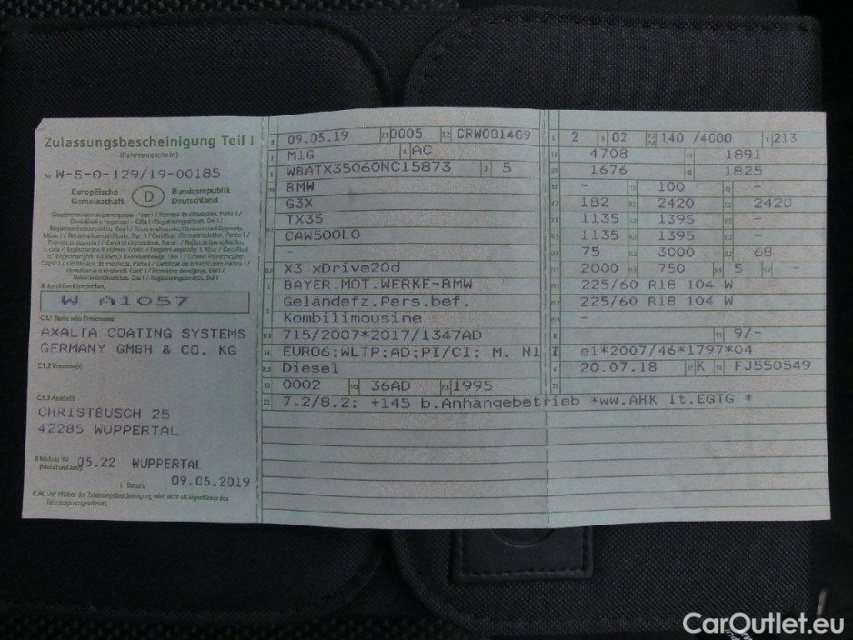 Zulassungsbescheinigung Teil I
(Fahrzeugschein)
Nr. W-S-0-129/19-00185
Europäische Gemeinschaft D Bundesrepublik Deutschland
A Amtliches Kennzeichen
W A1057
C.1.1 Name oder Firmenname
AXALTA COATING SYSTEMS
GERMANY GMBH & CO. KG
C.1.2 Vorname(n)
C.1.3 Anschrift
CHRISTBUSCH 25
42285 WUPPERTAL
05.22 WUPPERTAL
I Datum 09.05.2019
09.05.19 0005 CRW001409
M1G AC
WBATX35060NC15873 5
BMW
G3X
TX35
CAW500L0
-
X3 xDrive20d
BAYER.MOT.WERKE-BMW
Geländefz.Pers.bef.
Kombilimousine
715/2007*2017/1347AD
EURO6;WLTP;AD;PI/CI; M, N1
Diesel
0002 36AD 1995
7.2/8.2: +145 b.Anhängebetrieb *ww.AHK lt.EGTG *
2 02 140 /4000 213
4708 1891
1676 1825
- 100 -
182 2420 2420
1135 1395 -
1135 1395 -
75 3000 68
2000 750 5 -
225/60 R18 104 W
225/60 R18 104 W
-
9/-
e1*2007/46*1797*04
20.07.18 K FJ550549
CarOutlet.eu